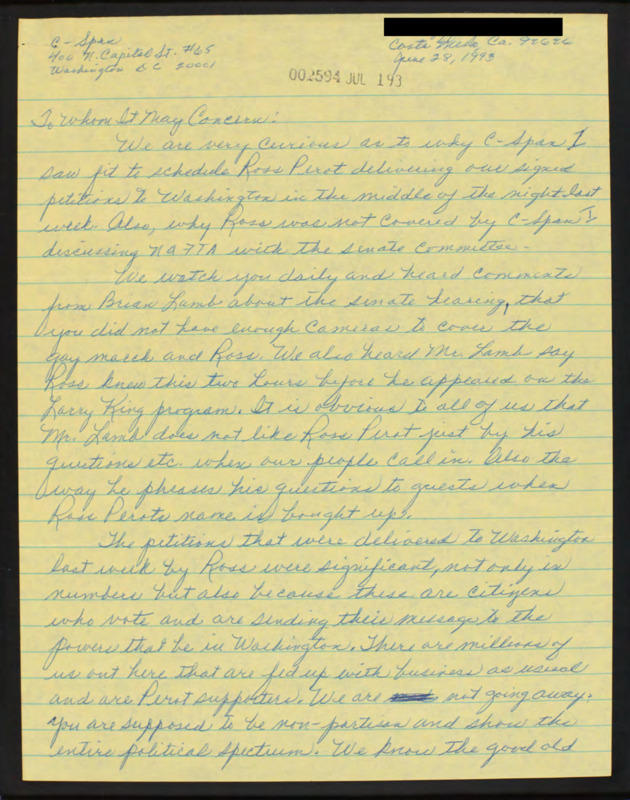 C-Span
400 N. Capital St. #65
Washington D C 20001
Costa Mesa, Ca. 92626
June 28, 1993
002594 JUL 193
To Whom It May Concern:
We are very curious as to why C-Span I
saw fit to schedule Ross Perot delivering our signed
petitions to Washington in the middle of the night last
week. Also, why Ross was not covered by C-Span I
discussing NAFTA with the senate committee-
We watch you daily and heard comments
from Brian Lamb about the senate hearing, that
you did not have enough cameras to cover the
gay march and Ross. We also heard Mr. Lamb say
Ross knew this two hours before he appeared on the
Larry King program. It is obvious to all of us that
Mr. Lamb does not like Ross Perot just by his
questions etc. when our people call in. Also the
way he phrases his questions to guests when
Ross Perots name is bought up.
The petitions that were delivered to Washington
last week by Ross were significant, not only in
numbers but also because these are citizens
who vote and are sending their message to the
powers that be in Washington. There are millions of
us out here that are fed up with business as usual
and are Perot supporters. We are not going away.
You are supposed to be non-partisan and show the
entire political spectrum. We know the good old